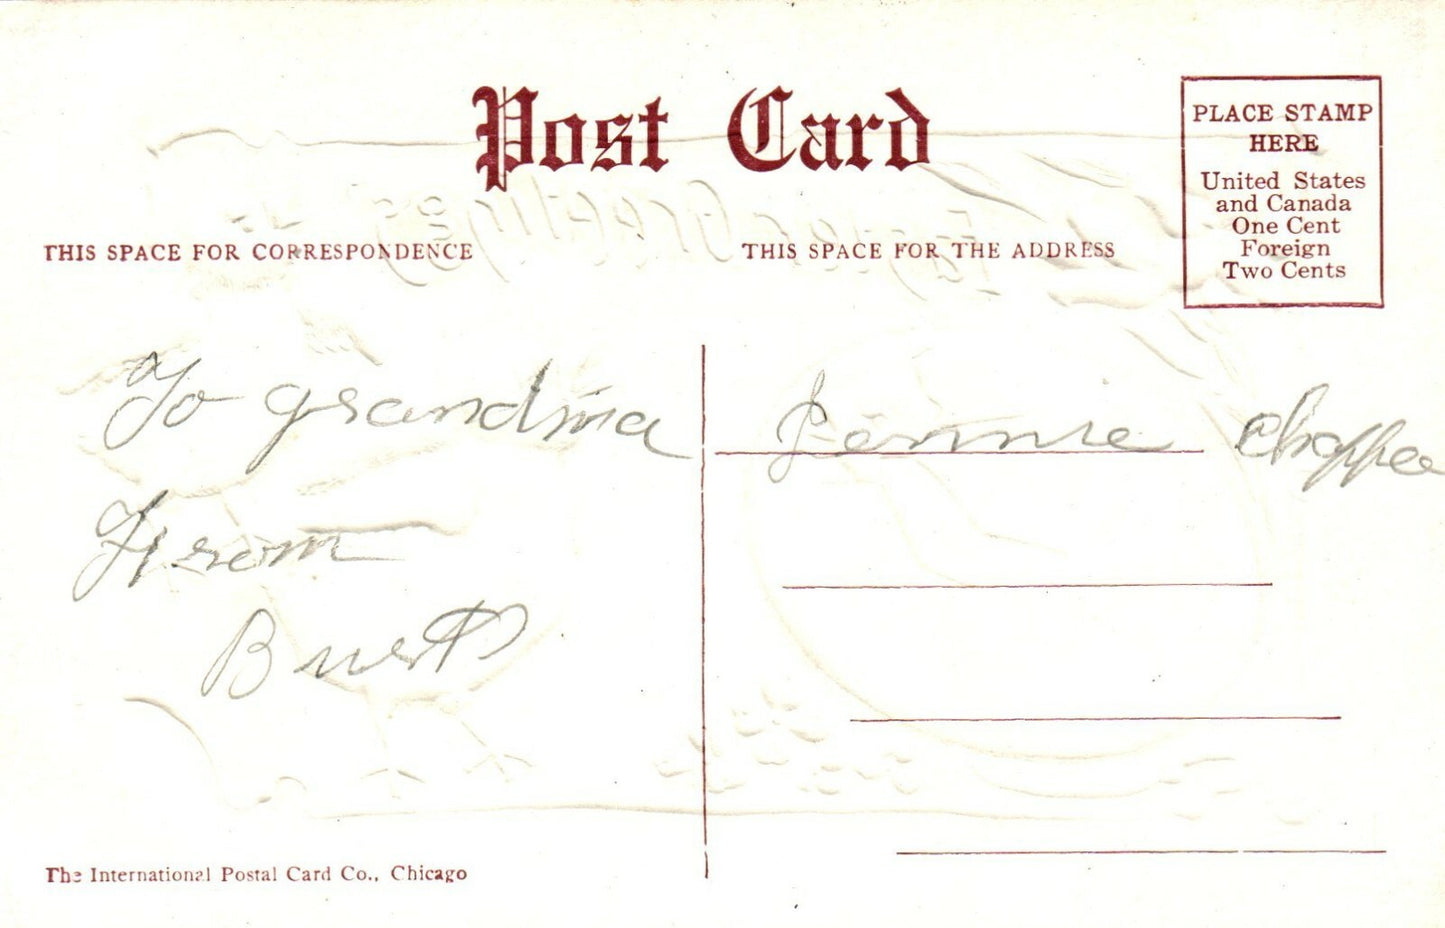 Post Card
PLACE STAMP
HERE
United States
and Canada
One Cent
Foreign
Two Cents
THIS SPACE FOR CORRESPONDENCE
THIS SPACE FOR THE ADDRESS
To grandma
From
Jennie
The International Postal Card Co., Chicago